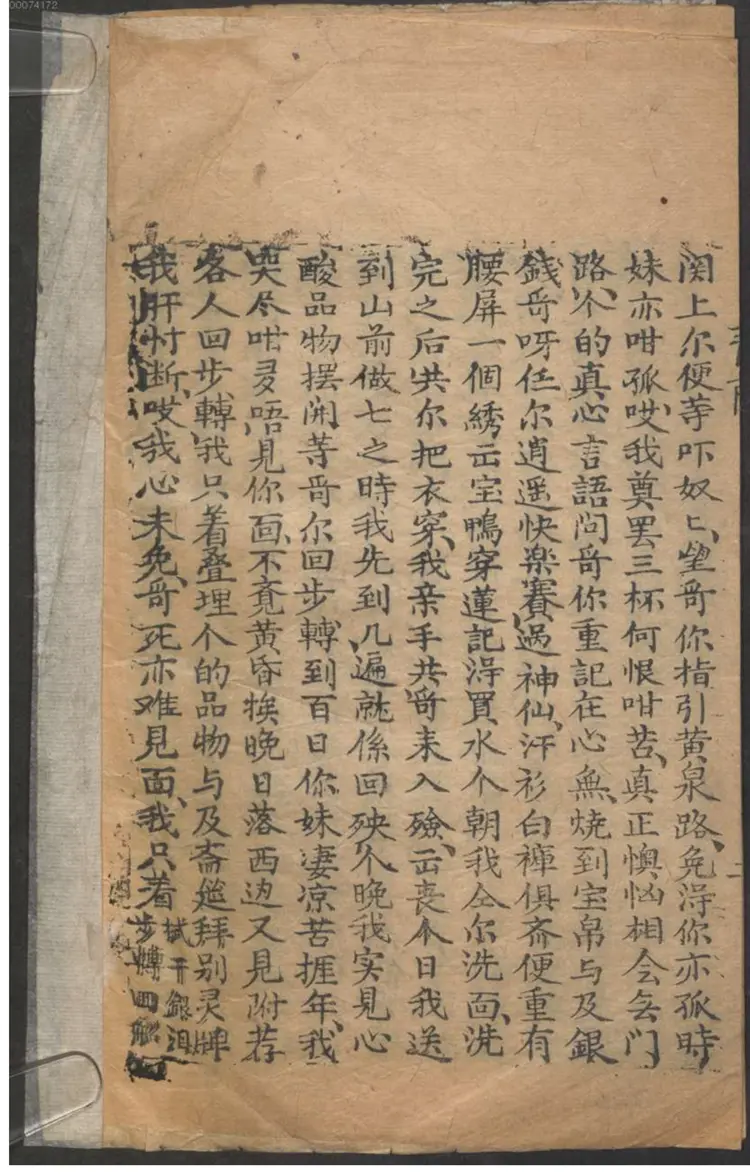 00074172
関上尔便䓁吓奴匕、望哥你指引黄泉路、免淂你亦孤時
妹亦咁孤、哎、我奠罢三杯何恨咁苦、真正懊㤙相会無门
路、个的真心言語問哥你重記在心無、燒到宝帛与及銀
錢、哥呀任尔逍遥快楽賽過神仙、汗衫白褲俱斋便重有
腰屏一個綉云宝鴨穿蓮記淂買水个朝我仝尔洗面、洗
完之后共尔把衣穿、我亲手共哥来入殮、云丧个日我送
到山前做七之時我先到几遍就係回殃个晚我实見心
酸品物摆開䓁哥尔回步轉到百日你妹凄凉苦捱年、我
哭尽咁多唔見你面、不竟黄昏挨晚日落西边又見附荐
客人回步轉、我只着叠埋个的品物与及斋筵拜别灵牌
我肝忖断、哎、我心未免、哥死亦难見面、我只着
拭干銀泪
步轉回